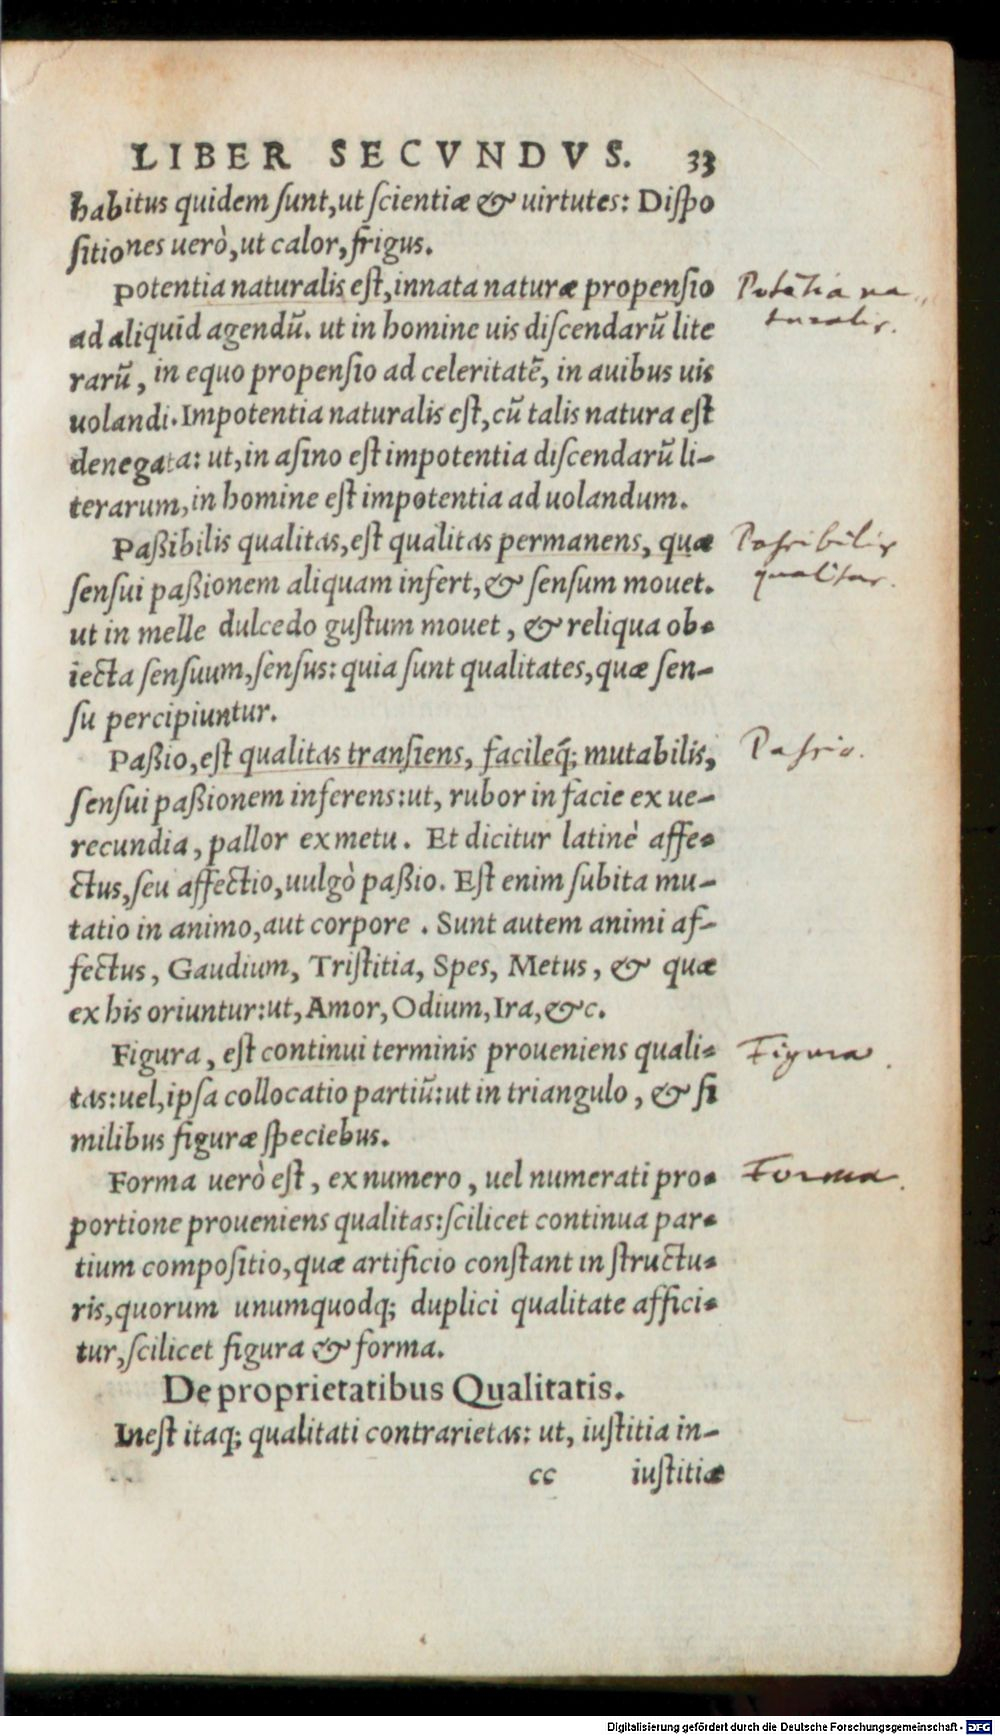 LIBER SECVNDVS. 33
habitus quidem ſunt,ut ſcientiæ & uirtutes: Diſpo
ſitiones uerò,ut calor,frigus.
Potentia naturalis eſt,innata naturæ propenſio
ad aliquid agendũ. ut in homine uis diſcendarũ lite
rarũ, in equo propenſio ad celeritatẽ, in auibus uis
uolandi.Impotentia naturalis eſt,cũ talis natura eſt
denegata: ut,in aſino eſt impotentia diſcendarũ li-
terarum,in homine eſt impotentia ad uolandum.
Paßibilis qualitas,eſt qualitas permanens, quæ
ſenſui paßionem aliquam infert,& ſenſum mouet.
ut in melle dulcedo guſtum mouet, & reliqua ob-
iecta ſenſuum,ſenſus: quia ſunt qualitates,quæ ſen-
ſu percipiuntur.
Paßio,eſt qualitas tranſiens, facileq́; mutabilis,
ſenſui paßionem inferens:ut, rubor in facie ex ue-
recundia, pallor ex metu. Et dicitur latinè affe-
ctus,ſeu affectio,uulgò paßio. Eſt enim ſubita mu-
tatio in animo,aut corpore. Sunt autem animi af-
fectus, Gaudium, Triſtitia, Spes, Metus, & quæ
ex his oriuntur:ut, Amor, Odium, Ira,&c.
Figura, eſt continui terminis proueniens quali-
tas: uel,ipſa collocatio partiũ: ut in triangulo, & ſi
milibus figuræ ſpeciebus.
Forma uerò eſt, ex numero, uel numerati pro-
portione proueniens qualitas:ſcilicet continua par-
tium compoſitio,quæ artificio conſtant in ſtructu-
ris,quorum unumquodq; duplici qualitate affici-
tur,ſcilicet figura & forma.
De proprietatibus Qualitatis.
Ineſt itaq; qualitati contrarietas: ut, iuſtitia in-
cc iuſtitiæ
Potẽtia na
turalis.
Paſsibilis
qualitas.
Paſsio.
Figura.
Forma.
Digitalisierung gefördert durch die Deutsche Forschungsgemeinschaft - DFG